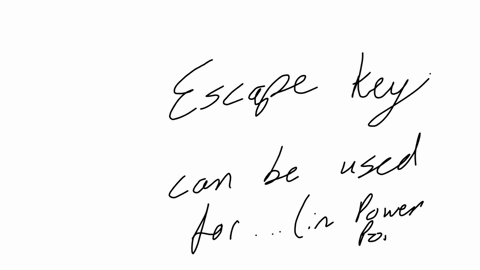 Escape key
can be used
for ... (in Power
Poi